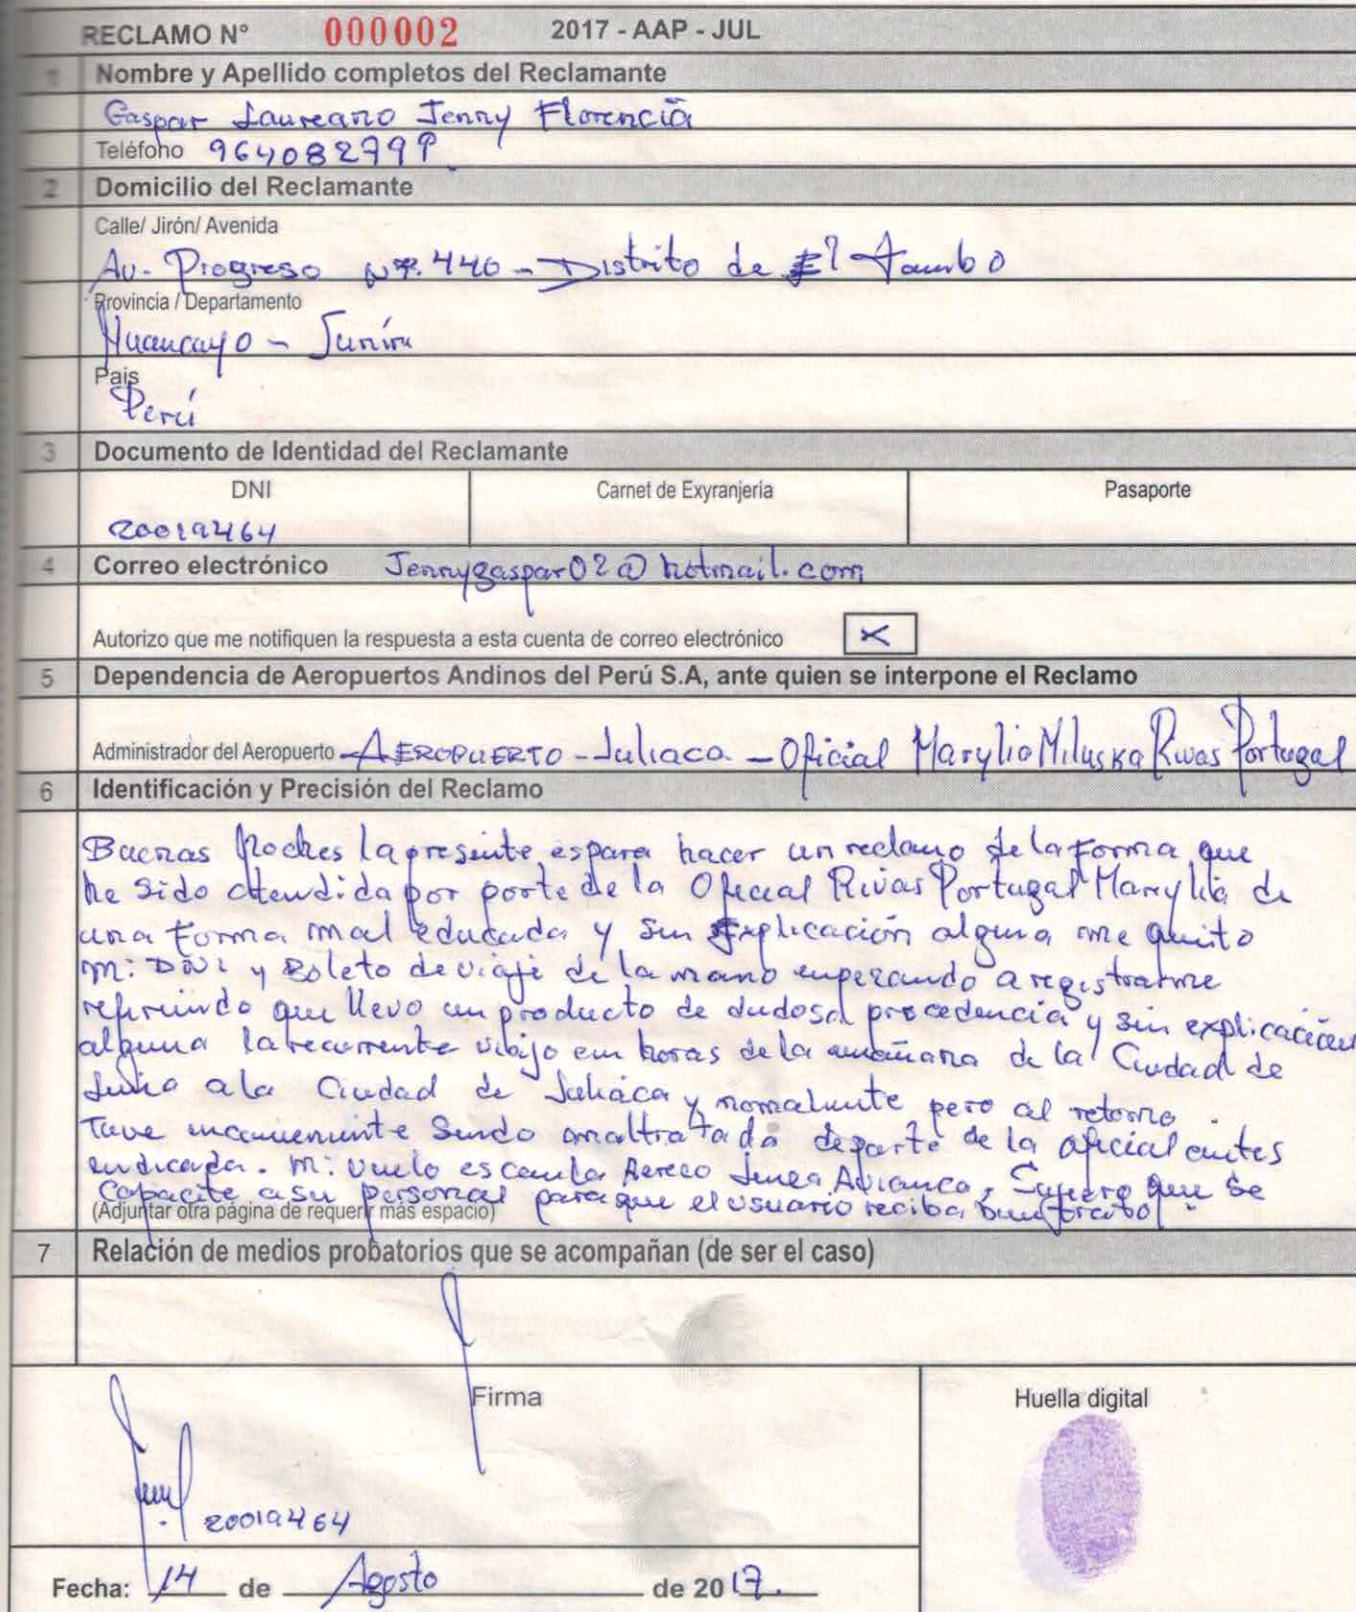 RECLAMO N° 000002 2017 - AAP - JUL
1 Nombre y Apellido completos del Reclamante
Gaspar Laureano Jenny Florencia
Teléfono 964082799
2 Domicilio del Reclamante
Calle/ Jirón/ Avenida
Av. Progreso Nº. 440 - Distrito de El Tambo
Provincia / Departamento
Huancayo - Junín
Pais
Perú
3 Documento de Identidad del Reclamante
DNI Carnet de Exyranjeria Pasaporte
20019464
4 Correo electrónico Jennygaspar02@hotmail.com
Autorizo que me notifiquen la respuesta a esta cuenta de correo electrónico X
5 Dependencia de Aeropuertos Andinos del Perú S.A, ante quien se interpone el Reclamo
Administrador del Aeropuerto - AEROPUERTO - Juliaca - Oficial Marylia Miluska Rivas Portugal
6 Identificación y Precisión del Reclamo
Buenas Noches la presente es para hacer un reclamo de la forma que
he sido atendida por parte de la Oficial Rivas Portugal Marylia de
una forma mal educada y sin Explicación alguna me quito
mi DNI y Boleto de viaje de la mano empezando a registrarme
refiriendo que llevo un producto de dudosa procedencia y sin explicación
alguna la recurrente viajo en horas de la mañana de la Ciudad de
Lima a la Ciudad de Juliaca y normalmente pero al retorno
Tuve inconveniente siendo maltratada departe de la oficial antes
indicada. mi vuelo es con la Aereo Linea Avianca, Sugiero que se
Capacite a su personal para que el usuario reciba buen trato.
(Adjuntar otra página de requerir más espacio)
7 Relación de medios probatorios que se acompañan (de ser el caso)
Firma Huella digital
20019464
Fecha: 14 de Agosto de 2017.